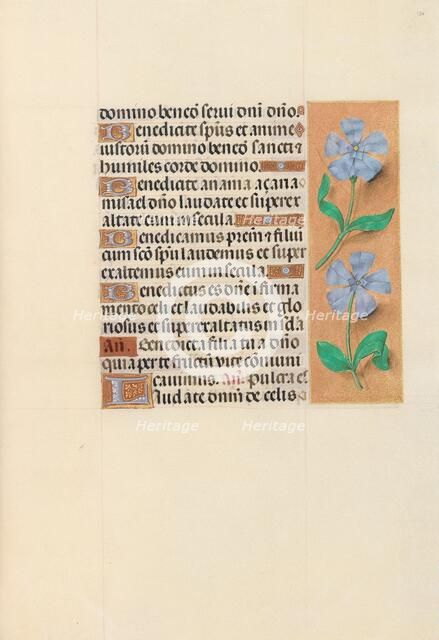 domino benco͠ serui dn͠i dn͠o.
Benedicite sp͠us et anime
iustoru͠ domino benco͠ sancti ⁊
humiles corde domino.
Benedicite anania açaria
misael dn͠o laudate et superex
altate eum in secula.
Benedicamus prem͠ et filiu͠
cum sco͠ sp͠u laudemus et super
exaltemus eum in secula.
Benedictus es dn͠e i͠ firma
mento celi et laudabilis et glo
riosus et superexaltatus in
An͠. Benedicta filia tu a dn͠o
quia per te fructu͠ vite co͠muni
cauimus. An͠. pulcra es
Laudate dn͠m de celis
Heritage
Heritage
Heritage
Heritage
Heritage
Heritage